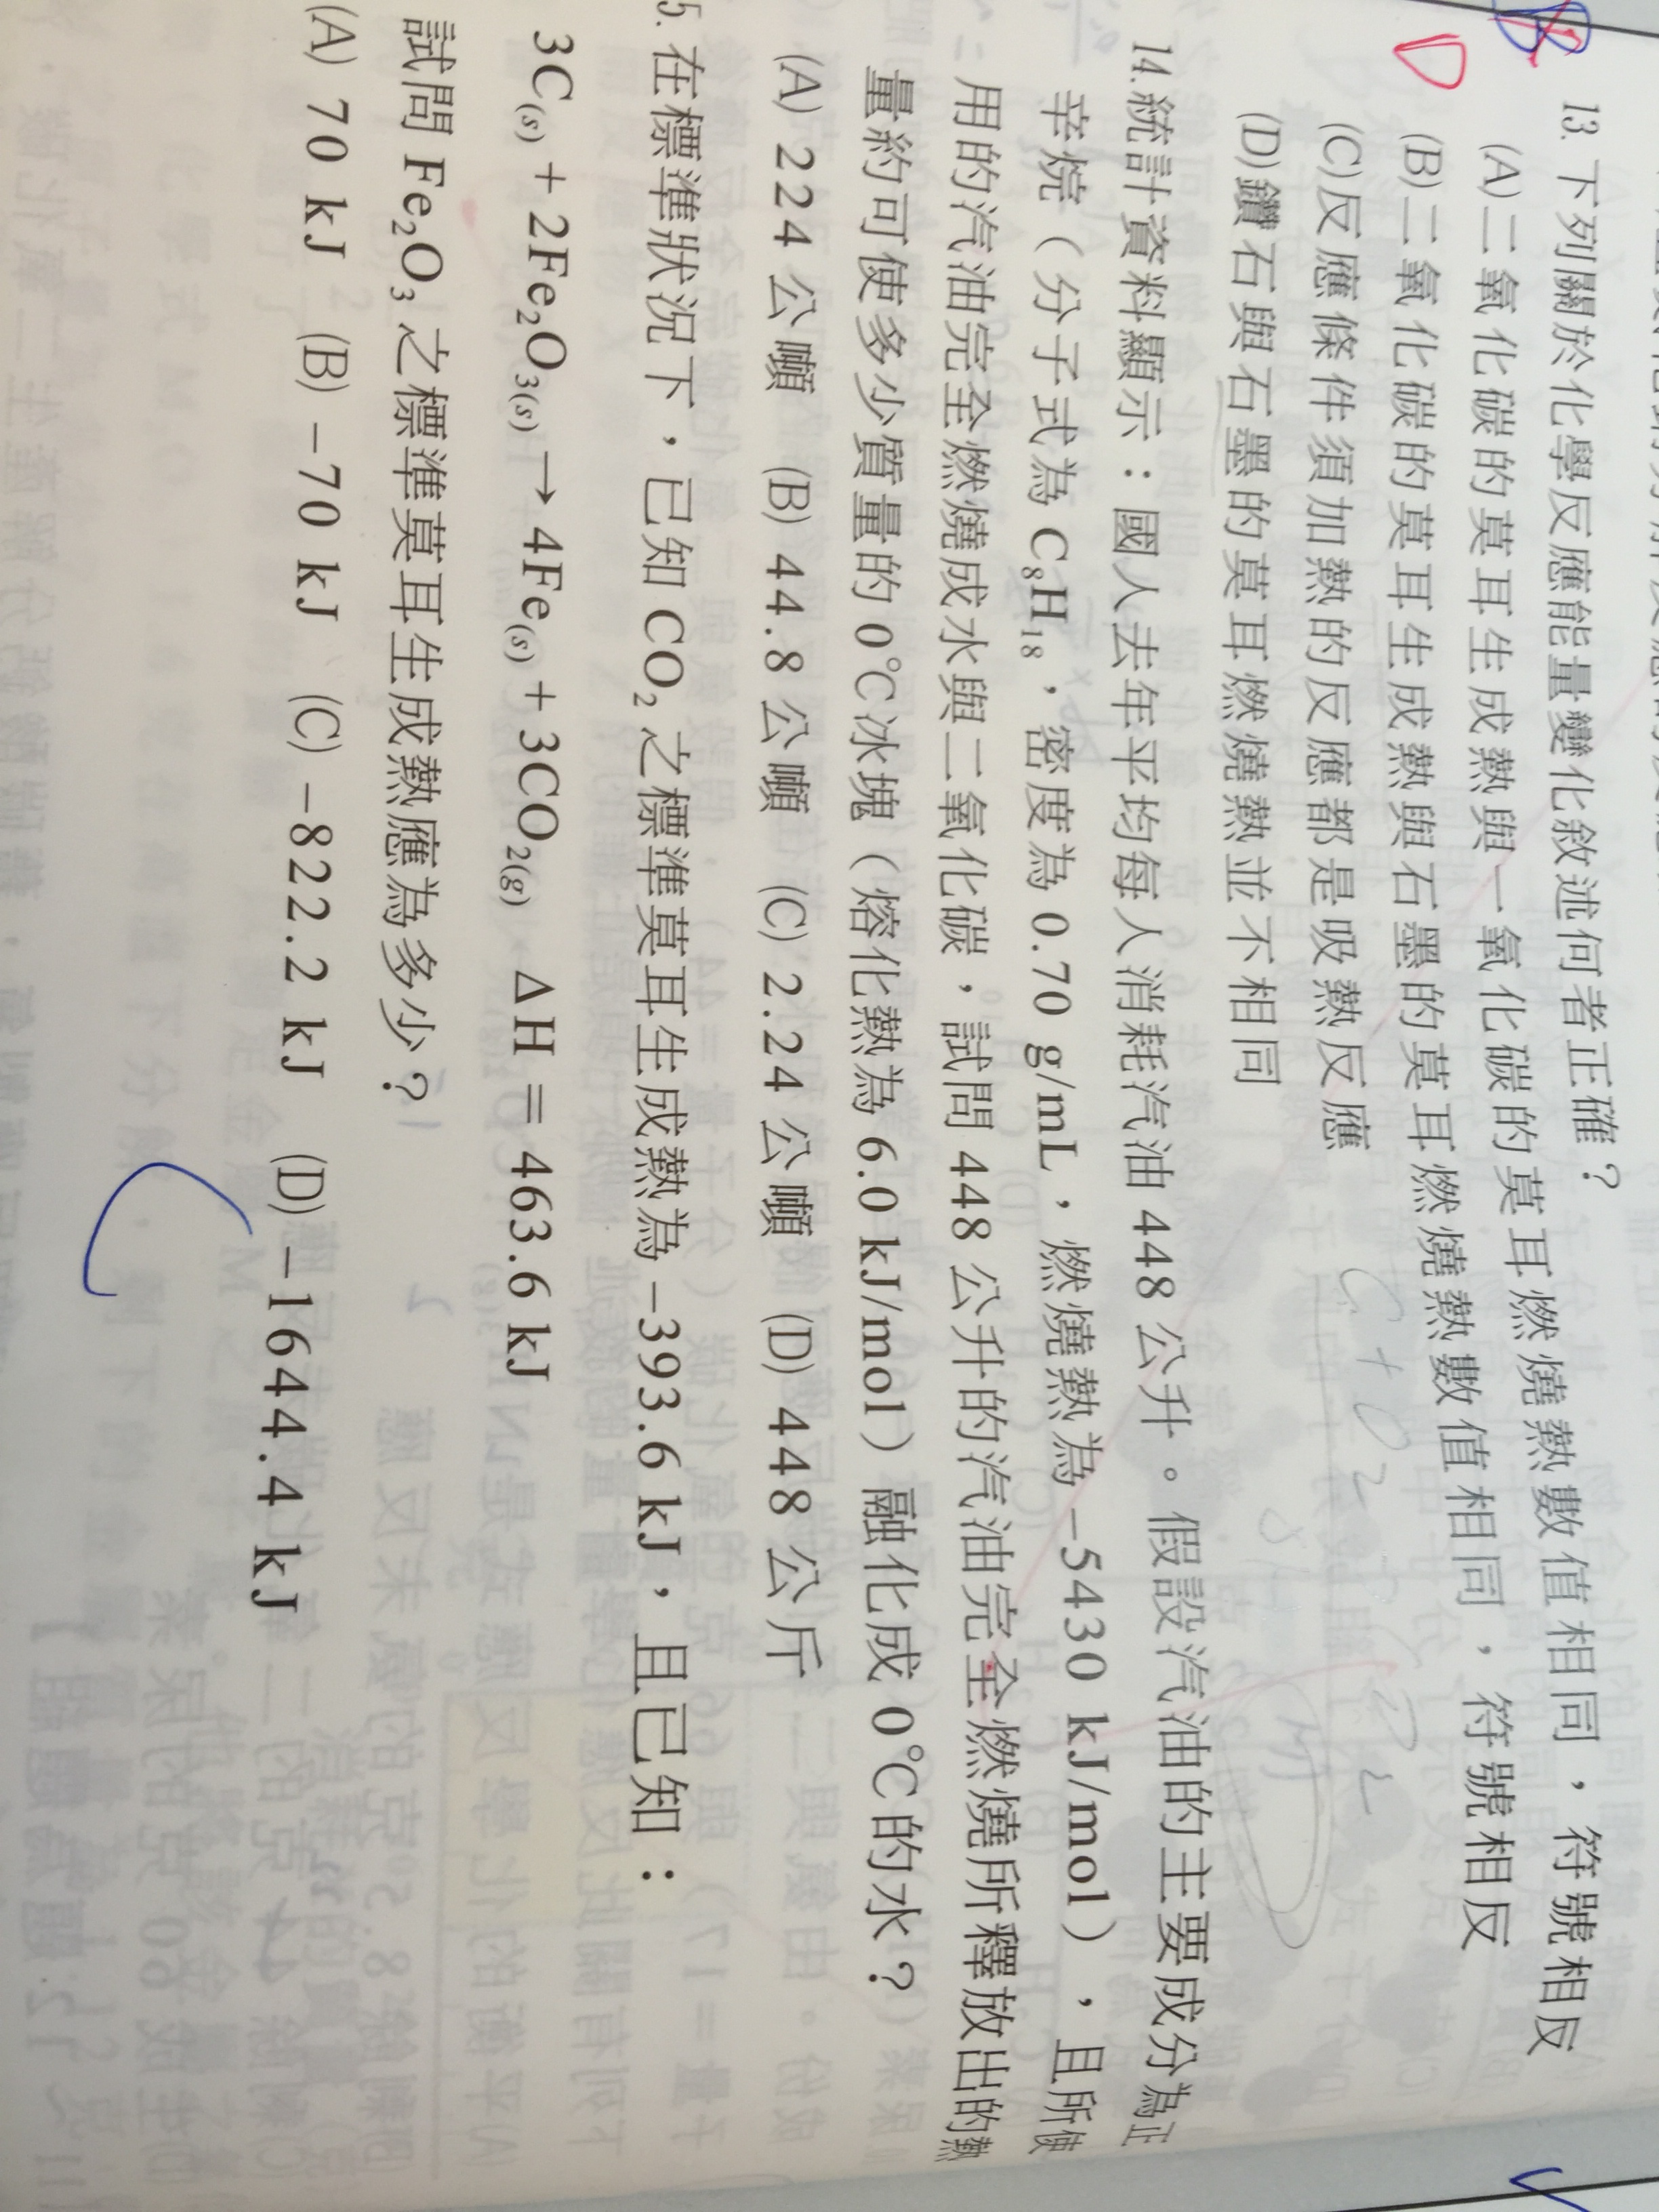 13. 下列關於化學反應能量變化敘述何者正確？
(A)二氧化碳的莫耳生成熱與一氧化碳的莫耳燃燒熱數值相同，符號相反
(B)二氧化碳的莫耳生成熱與石墨的莫耳燃燒熱數值相同，符號相反
(C)反應條件須加熱的反應都是吸熱反應
(D)鑽石與石墨的莫耳燃燒熱並不相同
14.統計資料顯示：國人去年平均每人消耗汽油 448 公升。假設汽油的主要成分為正
辛烷（分子式為 C₈H₁₈，密度為 0.70 g/mL，燃燒熱為 −5430 kJ/mol），且所使
用的汽油完全燃燒成水與二氧化碳，試問 448 公升的汽油完全燃燒所釋放出的熱
量約可使多少質量的 0℃冰塊（熔化熱為 6.0 kJ/mol）融化成 0℃的水？
(A) 224 公噸 (B) 44.8 公噸 (C) 2.24 公噸 (D) 448 公斤
5. 在標準狀況下，已知 CO₂ 之標準莫耳生成熱為 −393.6 kJ，且已知：
3C(s) + 2Fe₂O₃(s) → 4Fe(s) + 3CO₂(g) ΔH = 463.6 kJ
試問 Fe₂O₃ 之標準莫耳生成熱應為多少？
(A) 70 kJ (B) −70 kJ (C) −822.2 kJ (D) −1644.4 kJ